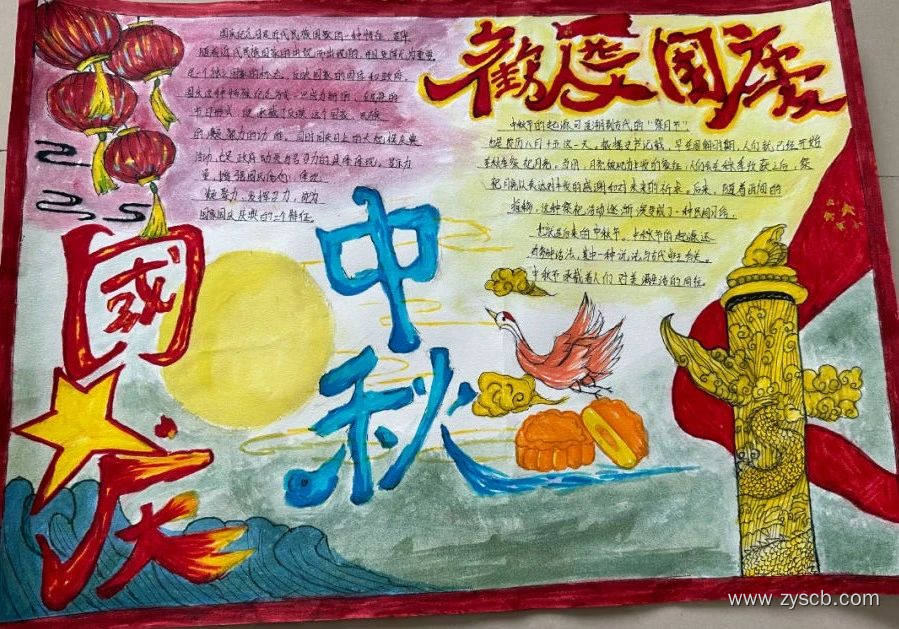 国庆纪念日是近代民族国家的一种特征，是伴
随着近代民族国家的出现而出现的，并且变得尤为重要
是一个独立国家的标志，反映国家的国体和政府。
国庆这种特殊纪念方式一旦成为新的、全民性的
节日形式，便承载了反映这个国家、民族
的凝聚力的功能，同时国庆日上的大规模庆典
活动，也是政府动员与号召力的具体体现。显示力
量、增强国民信心，体现
凝聚力，发挥号召力，即为
国家国庆庆典的三个特征。
國慶
中秋
中秋节的起源可追溯到古代的“祭月节”
也是农历八月十五这一天，
人们就已经开始
在秋季祭祀月亮，当时，月亮被视为丰收的象征，人们会在秋季收获之后，祭
祀月亮以表达对丰收的感谢和对未来的祈求。后来，随着时间的
推移，这种祭祀活动逐渐演变成了一种民间习俗，
也就是后来的中秋节。中秋节的起源还
有多种说法，其中一种说法与古代帝王有关。
中秋节承载着人们对美满生活的向往。
www.zyscb.com